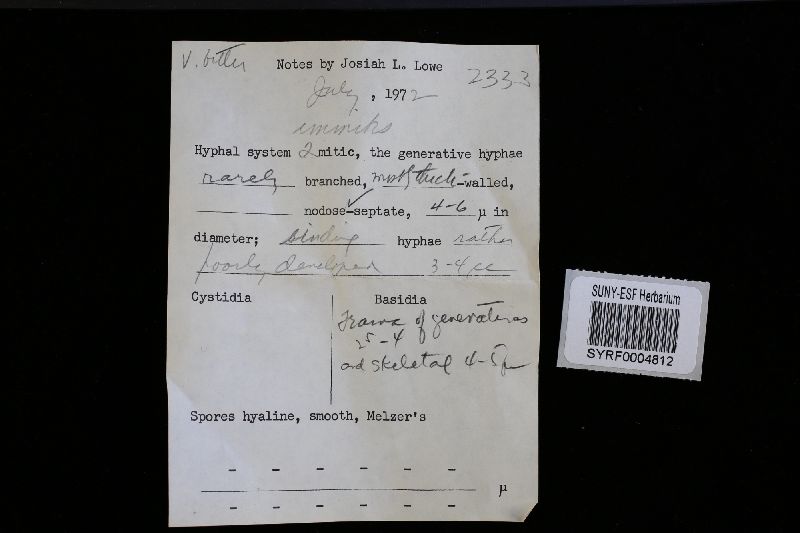 V. bitter
Notes by Josiah L. Lowe
2333
July, 1972
immitis
Hyphal system 2mitic, the generative hyphae
rarely branched, mostly thick-walled,
nodose-septate, 4-6 µ in
diameter; binding hyphae rather
poorly developed 3-4µ
Cystidia
Basidia
Trama of generatives
2.5-4
and skeletal 4-5µ
Spores hyaline, smooth, Melzer's
- - - - - -
µ
- - - - - -
SUNY-ESF Herbarium
SYRF0004812